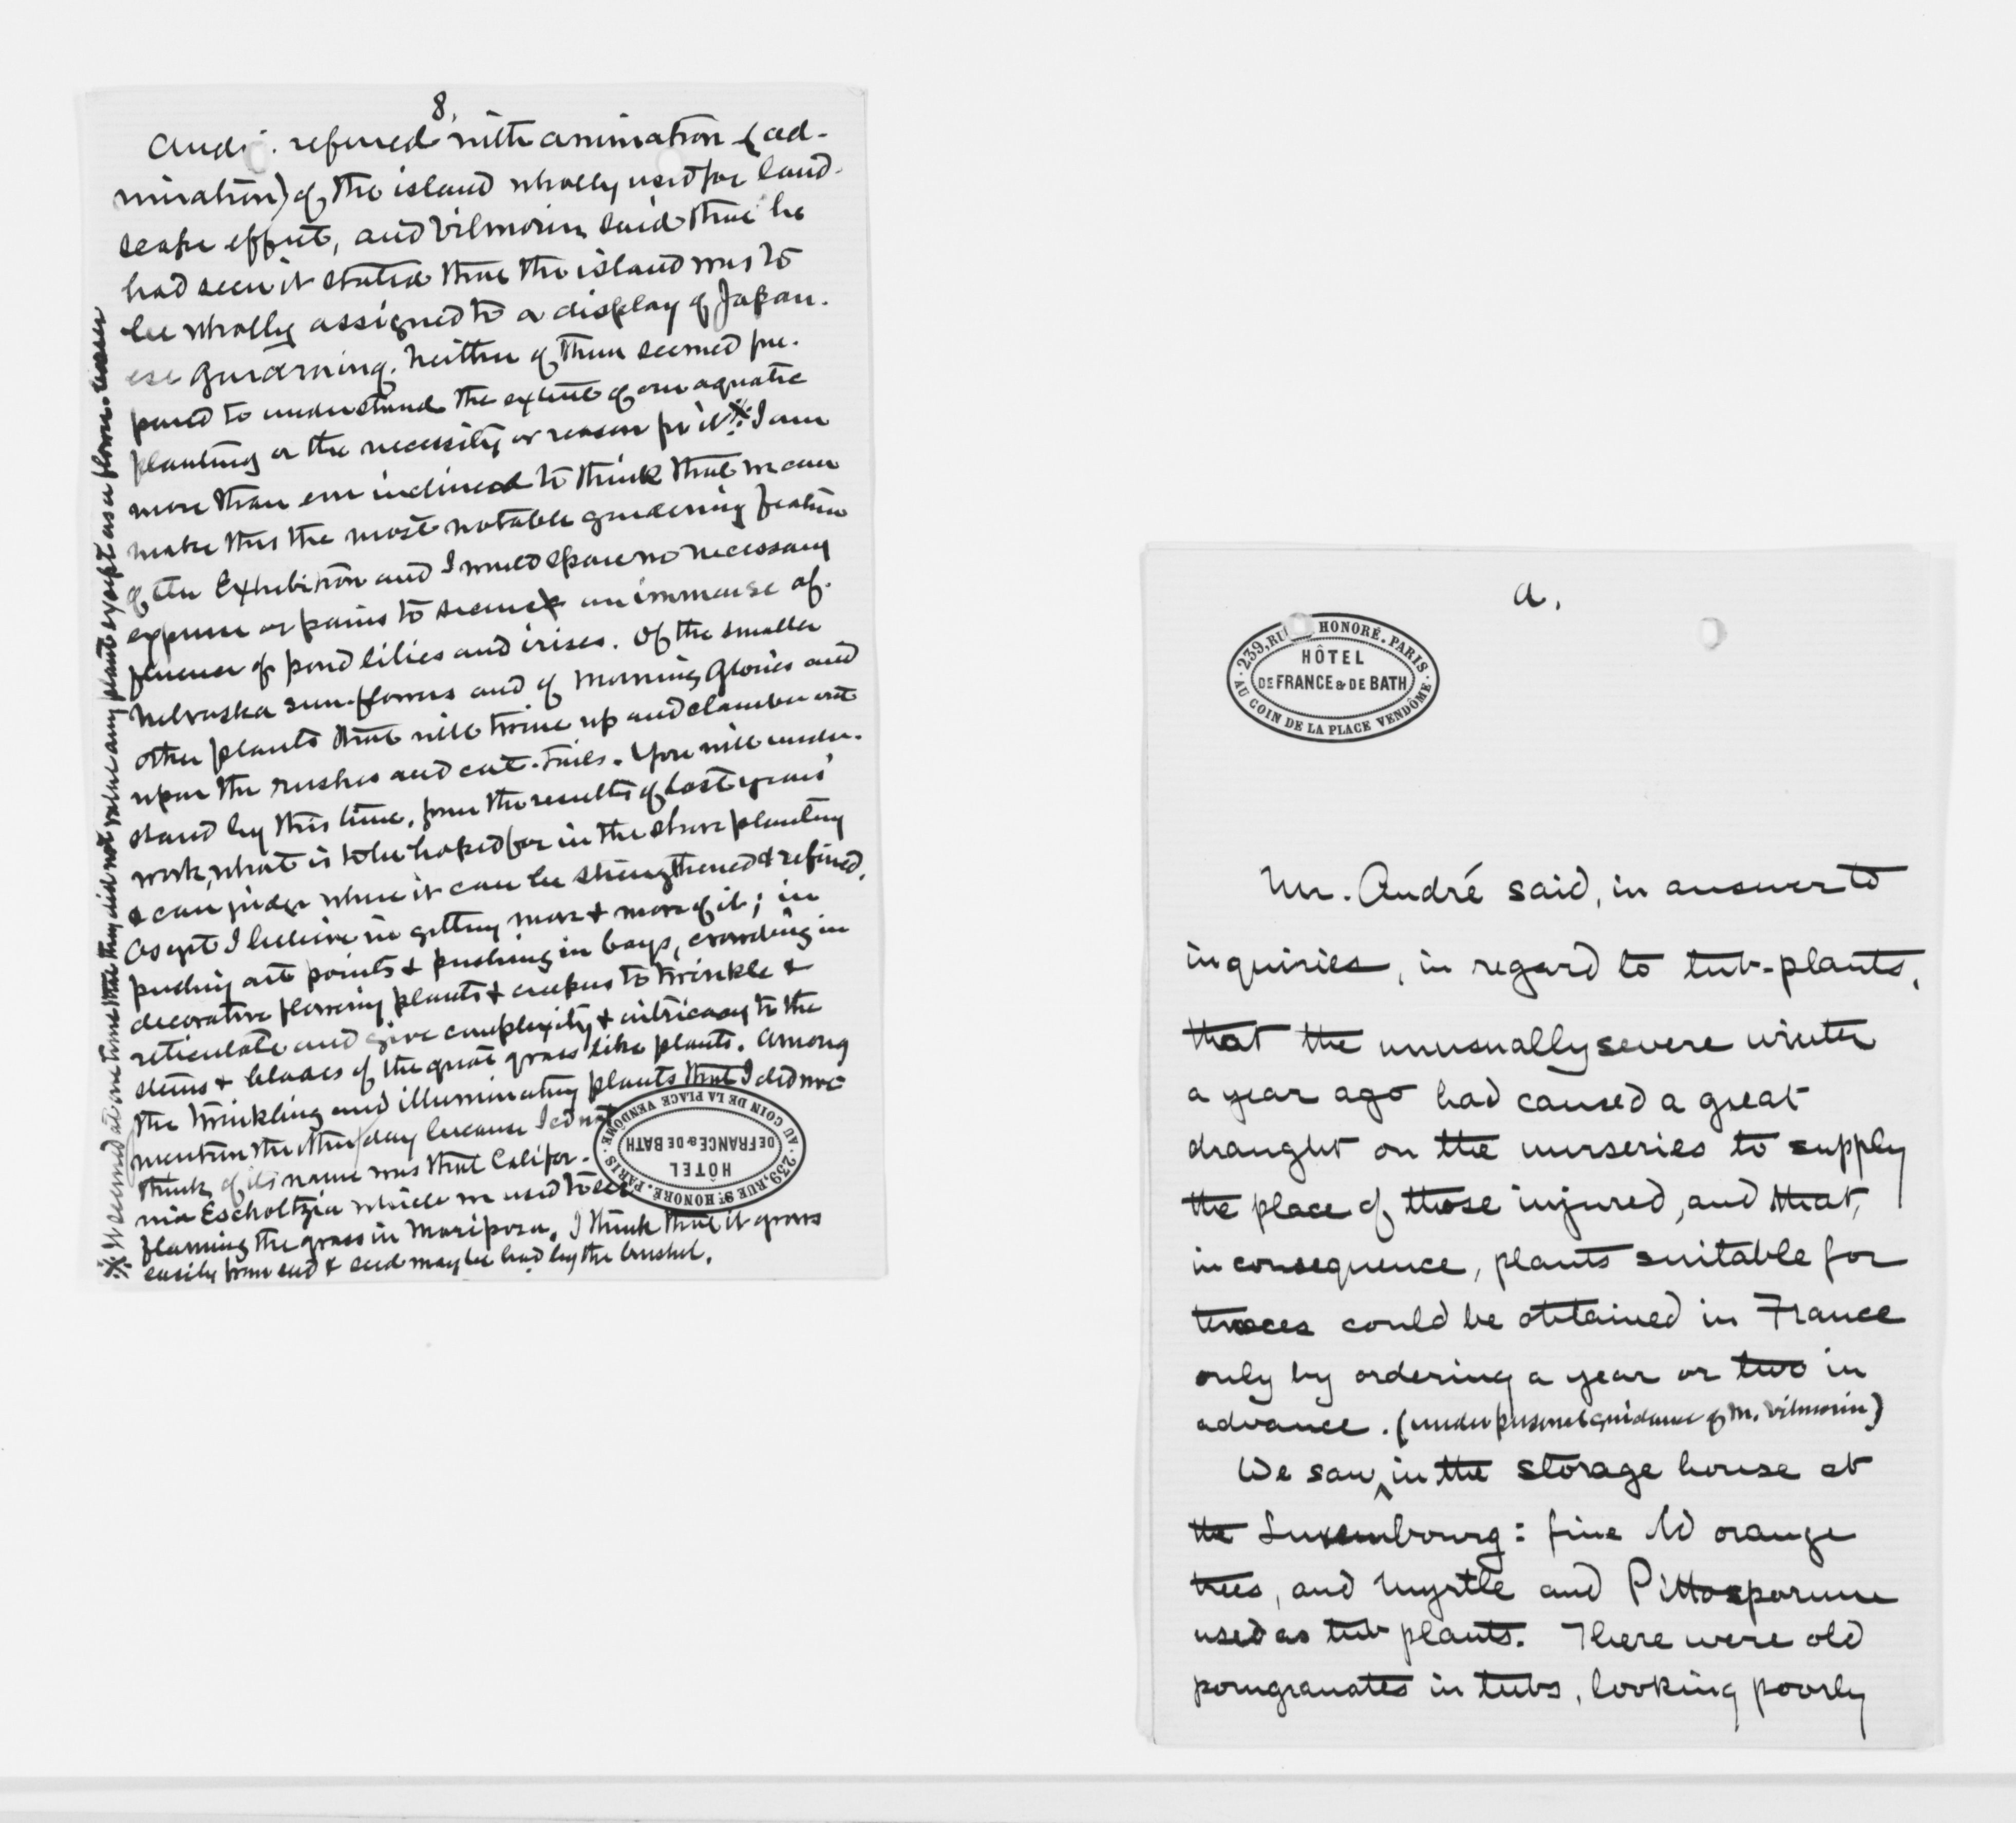 8.
André referred with animation (ad-
miration) of the island wholly used for land-
scape effect, and Vilmorin said that he
had seen it stated that the island was to
be wholly assigned to a display of Japan-
ese gardening. Neither of them seemed pre-
pared to understand the extent of our aquatic
planting or the necessity or reason for it.※ I am
more than ever inclined to think that we can
make this the most notable gardening feature
of the Exhibition and I would spare no necessary
expense or pains to secure an immense af-
fluence of pond lilies and irises. Of the smaller
Nebraska sun-flowers and of Morning Glories and
other plants that will twine up and clamber out
upon the rushes and cat-tails. You will under-
stand by this time, from the results of last years'
work, what is to be hoped for in the shore planting
& can judge where it can be strengthened & refined.
As yet I believe in getting more & more of it; in
pushing out points & pushing in bays, crowding in
decorative flowering plants & creepers to twinkle &
reticulate and give complexity & intricacy to the
stems & blades of the great grass like plants. Among
the twinkling and illuminating plants that I did not
mention the other day because I cd not
think of its name was that Califor-
nia Escholtzia which we used to see
flaming the grass in Mariposa. I think that it grows
easily from seed & seed may be had by the bushel.
※ It seemed at one time that they did not value any plant except as a flower-bearer
239, RUE ST HONORÉ. PARIS
HÔTEL
DE FRANCE & DE BATH
AU COIN DE LA PLACE VENDÔME
a.
239, RUE HONORÉ. PARIS
HÔTEL
DE FRANCE & DE BATH
AU COIN DE LA PLACE VENDÔME
Mr. André said, in answer to
inquiries, in regard to tub-plants,
that the unusually severe winter
a year ago had caused a great
draught on the nurseries to supply
the place of those injured, and that,
in consequence, plants suitable for
terraces could be obtained in France
only by ordering a year or two in
advance. (under personal guidance of M. Vilmorin)
We saw ‸ in the storage house at
the Luxembourg: fine old orange
trees, and Myrtle and Pittosporum
used as tub plants. There were old
pomgranates in tubs, looking poorly